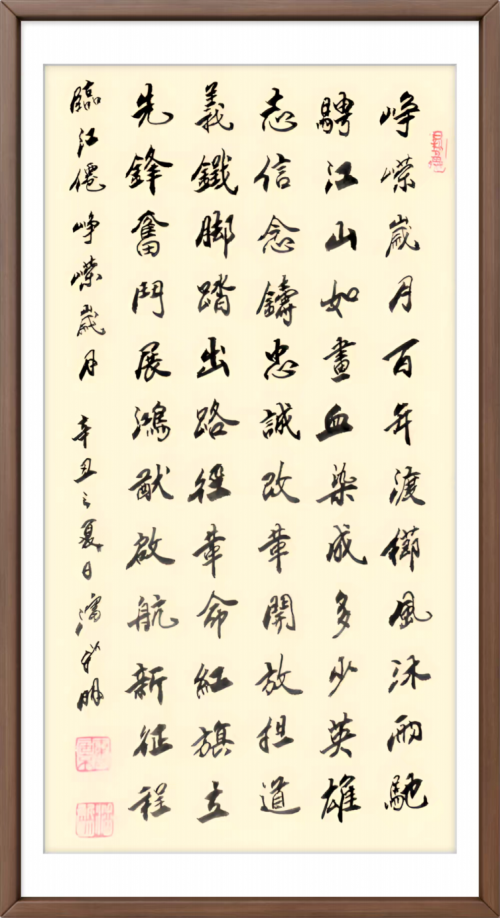 崢嶸歲月百年渡櫛風沐雨馳
騁江山如畫血染成多少英雄
志信念鑄忠誠改革開放担道
義鐵脚踏出路徑革命紅旗立
先鋒奮鬥展鴻猷啟航新征程
臨江僊崢嶸歲月 辛丑之夏日 明